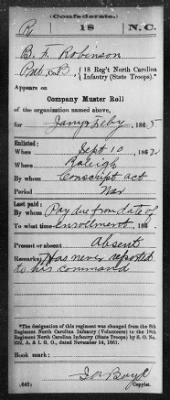 (Confederate.)
R 18 N.C.
B. F. Robinson
Pvt. Co. D, 18 Reg't North Carolina
Infantry (State Troops).*
Appears on
Company Muster Roll
of the organization named above,
for Jany & Feby, 1865
Enlisted:
When Sept 10, 1862
Where Raleigh
By whom Conscript act
Period War
Last paid:
By whom Pay due from date of
To what time Enrollment, 186 .
Present or absent Absent
Remarks: Has never reported
to his command
*The designation of this regiment was changed from the 8th
Regiment North Carolina Infantry (Volunteers) to the 18th
Regiment North Carolina Infantry (State Troops) by S. O. No.
222, A. & I. G. O., dated November 14, 1861.
Book mark:
(642) Copyist.